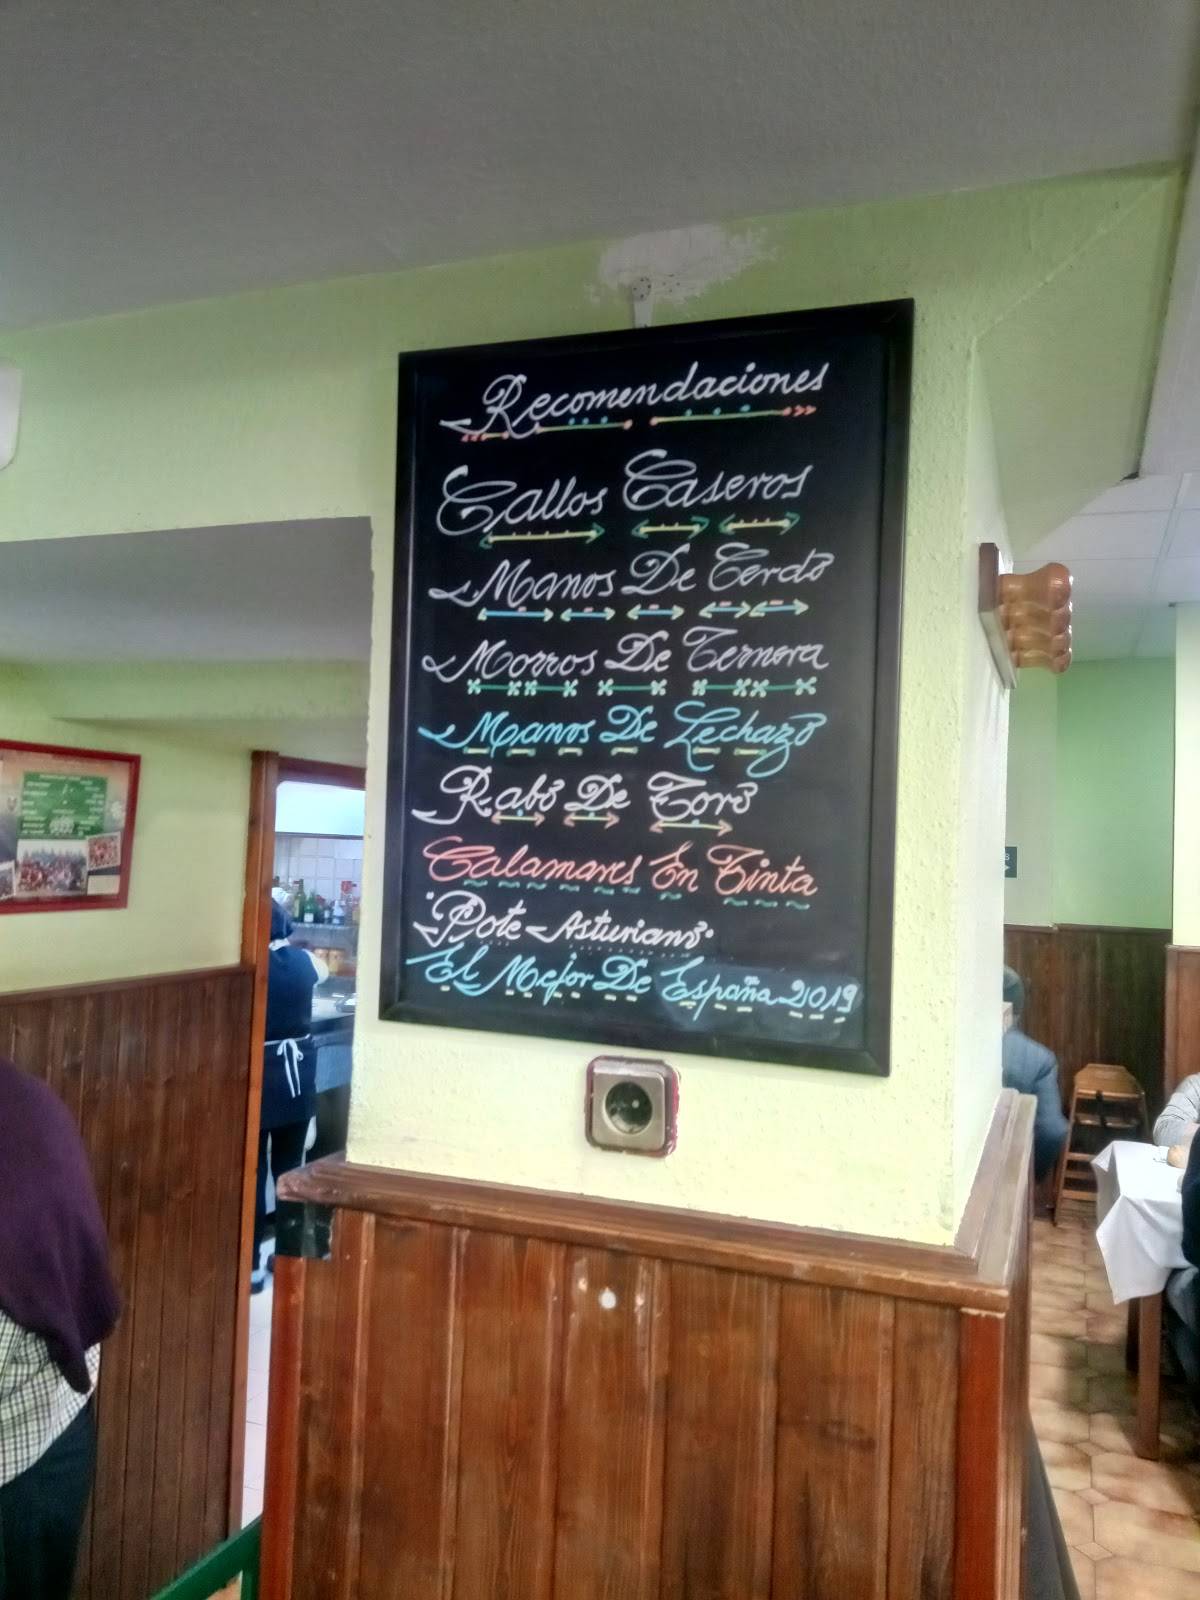 Recomendaciones
Callos Caseros
Manos De Cerdo
Morros De Ternera
Manos De Lechazo
Rabo De Toro
Calamares En Tinta
"Pote Asturiano"
El Mejor De España 2019